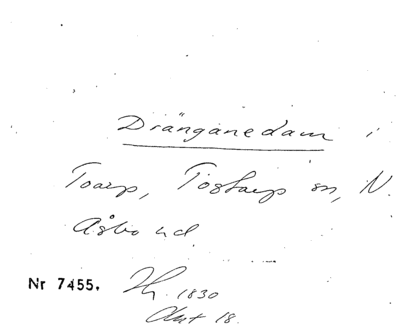 Dränganedam i
Toarp, Tostarp sn, N.
Åsbo hd.
Nr 7455. 1830
Akt 18.